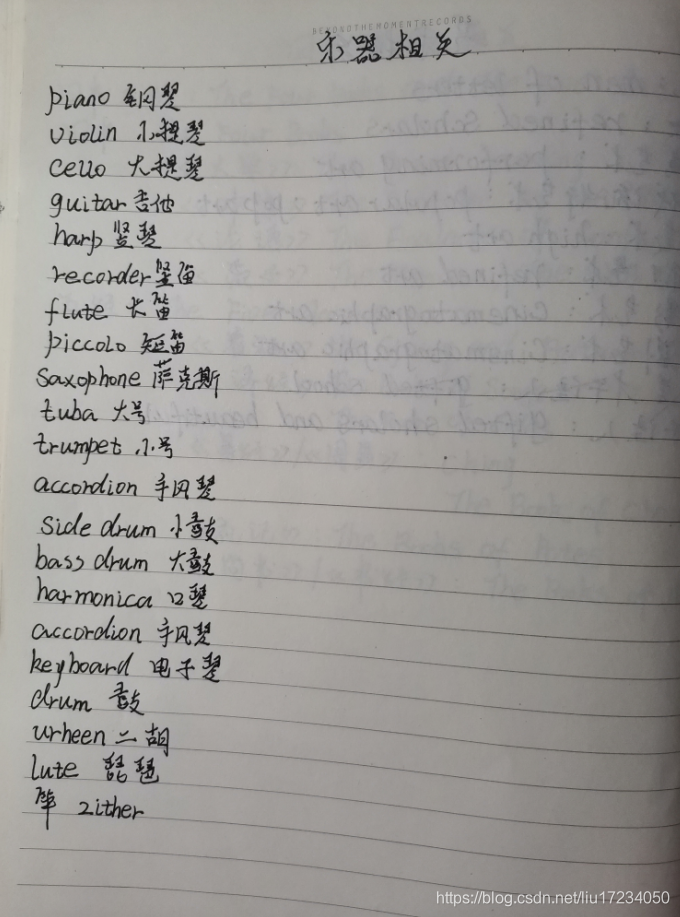 BEYONDTHEMOMENTRECORDS
乐器相关
piano 钢琴
violin 小提琴
cello 大提琴
guitar 吉他
harp 竖琴
recorder 竖笛
flute 长笛
piccolo 短笛
saxophone 萨克斯
tuba 大号
trumpet 小号
accordion 手风琴
side drum 小鼓
bass drum 大鼓
harmonica 口琴
accordion 手风琴
keyboard 电子琴
drum 鼓
urheen 二胡
lute 琵琶
zither
https://blog.csdn.net/liu17234050